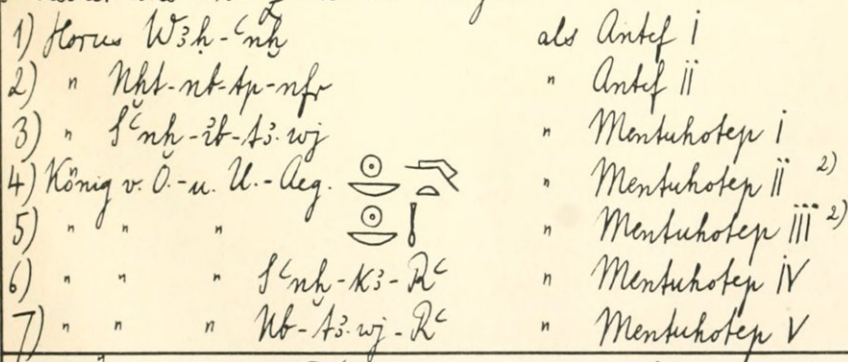 1) Horus W3ḥ-ꜥnḫ als Antef I
2) " Nḫt-nb-tp-nfr " Antef II
3) " Sꜥnḫ-ꞽb-t3.wj " Mentuhotep I
4) König v. O.-u. U.-Aeg. 𓇳𓎟𓊤𓏏 " Mentuhotep II 2)
5) " " " 𓇳𓎟𓌋 " Mentuhotep III 2)
6) " " " Sꜥnḫ-K3-Rꜥ " Mentuhotep IV
7) " " " Nb-t3.wj-Rꜥ " Mentuhotep V